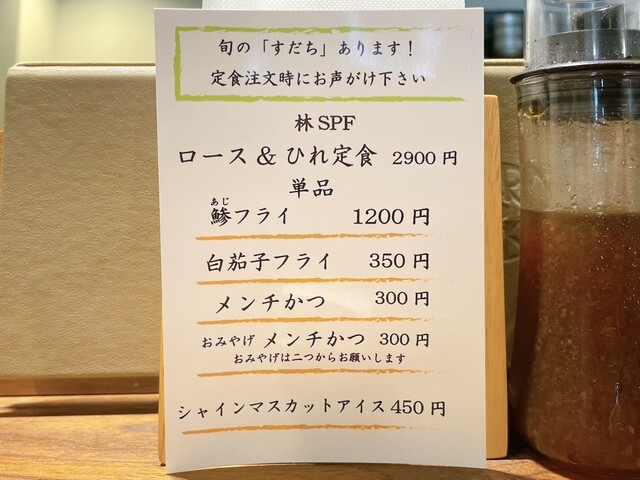 旬の「すだち」あります！
定食注文時にお声がけ下さい
林SPF
ロース & ひれ定食 2900円
単品
あじ
鯵フライ 1200円
白茄子フライ 350円
メンチかつ 300円
おみやげ メンチかつ 300円
おみやげは二つからお願いします
シャインマスカットアイス 450円